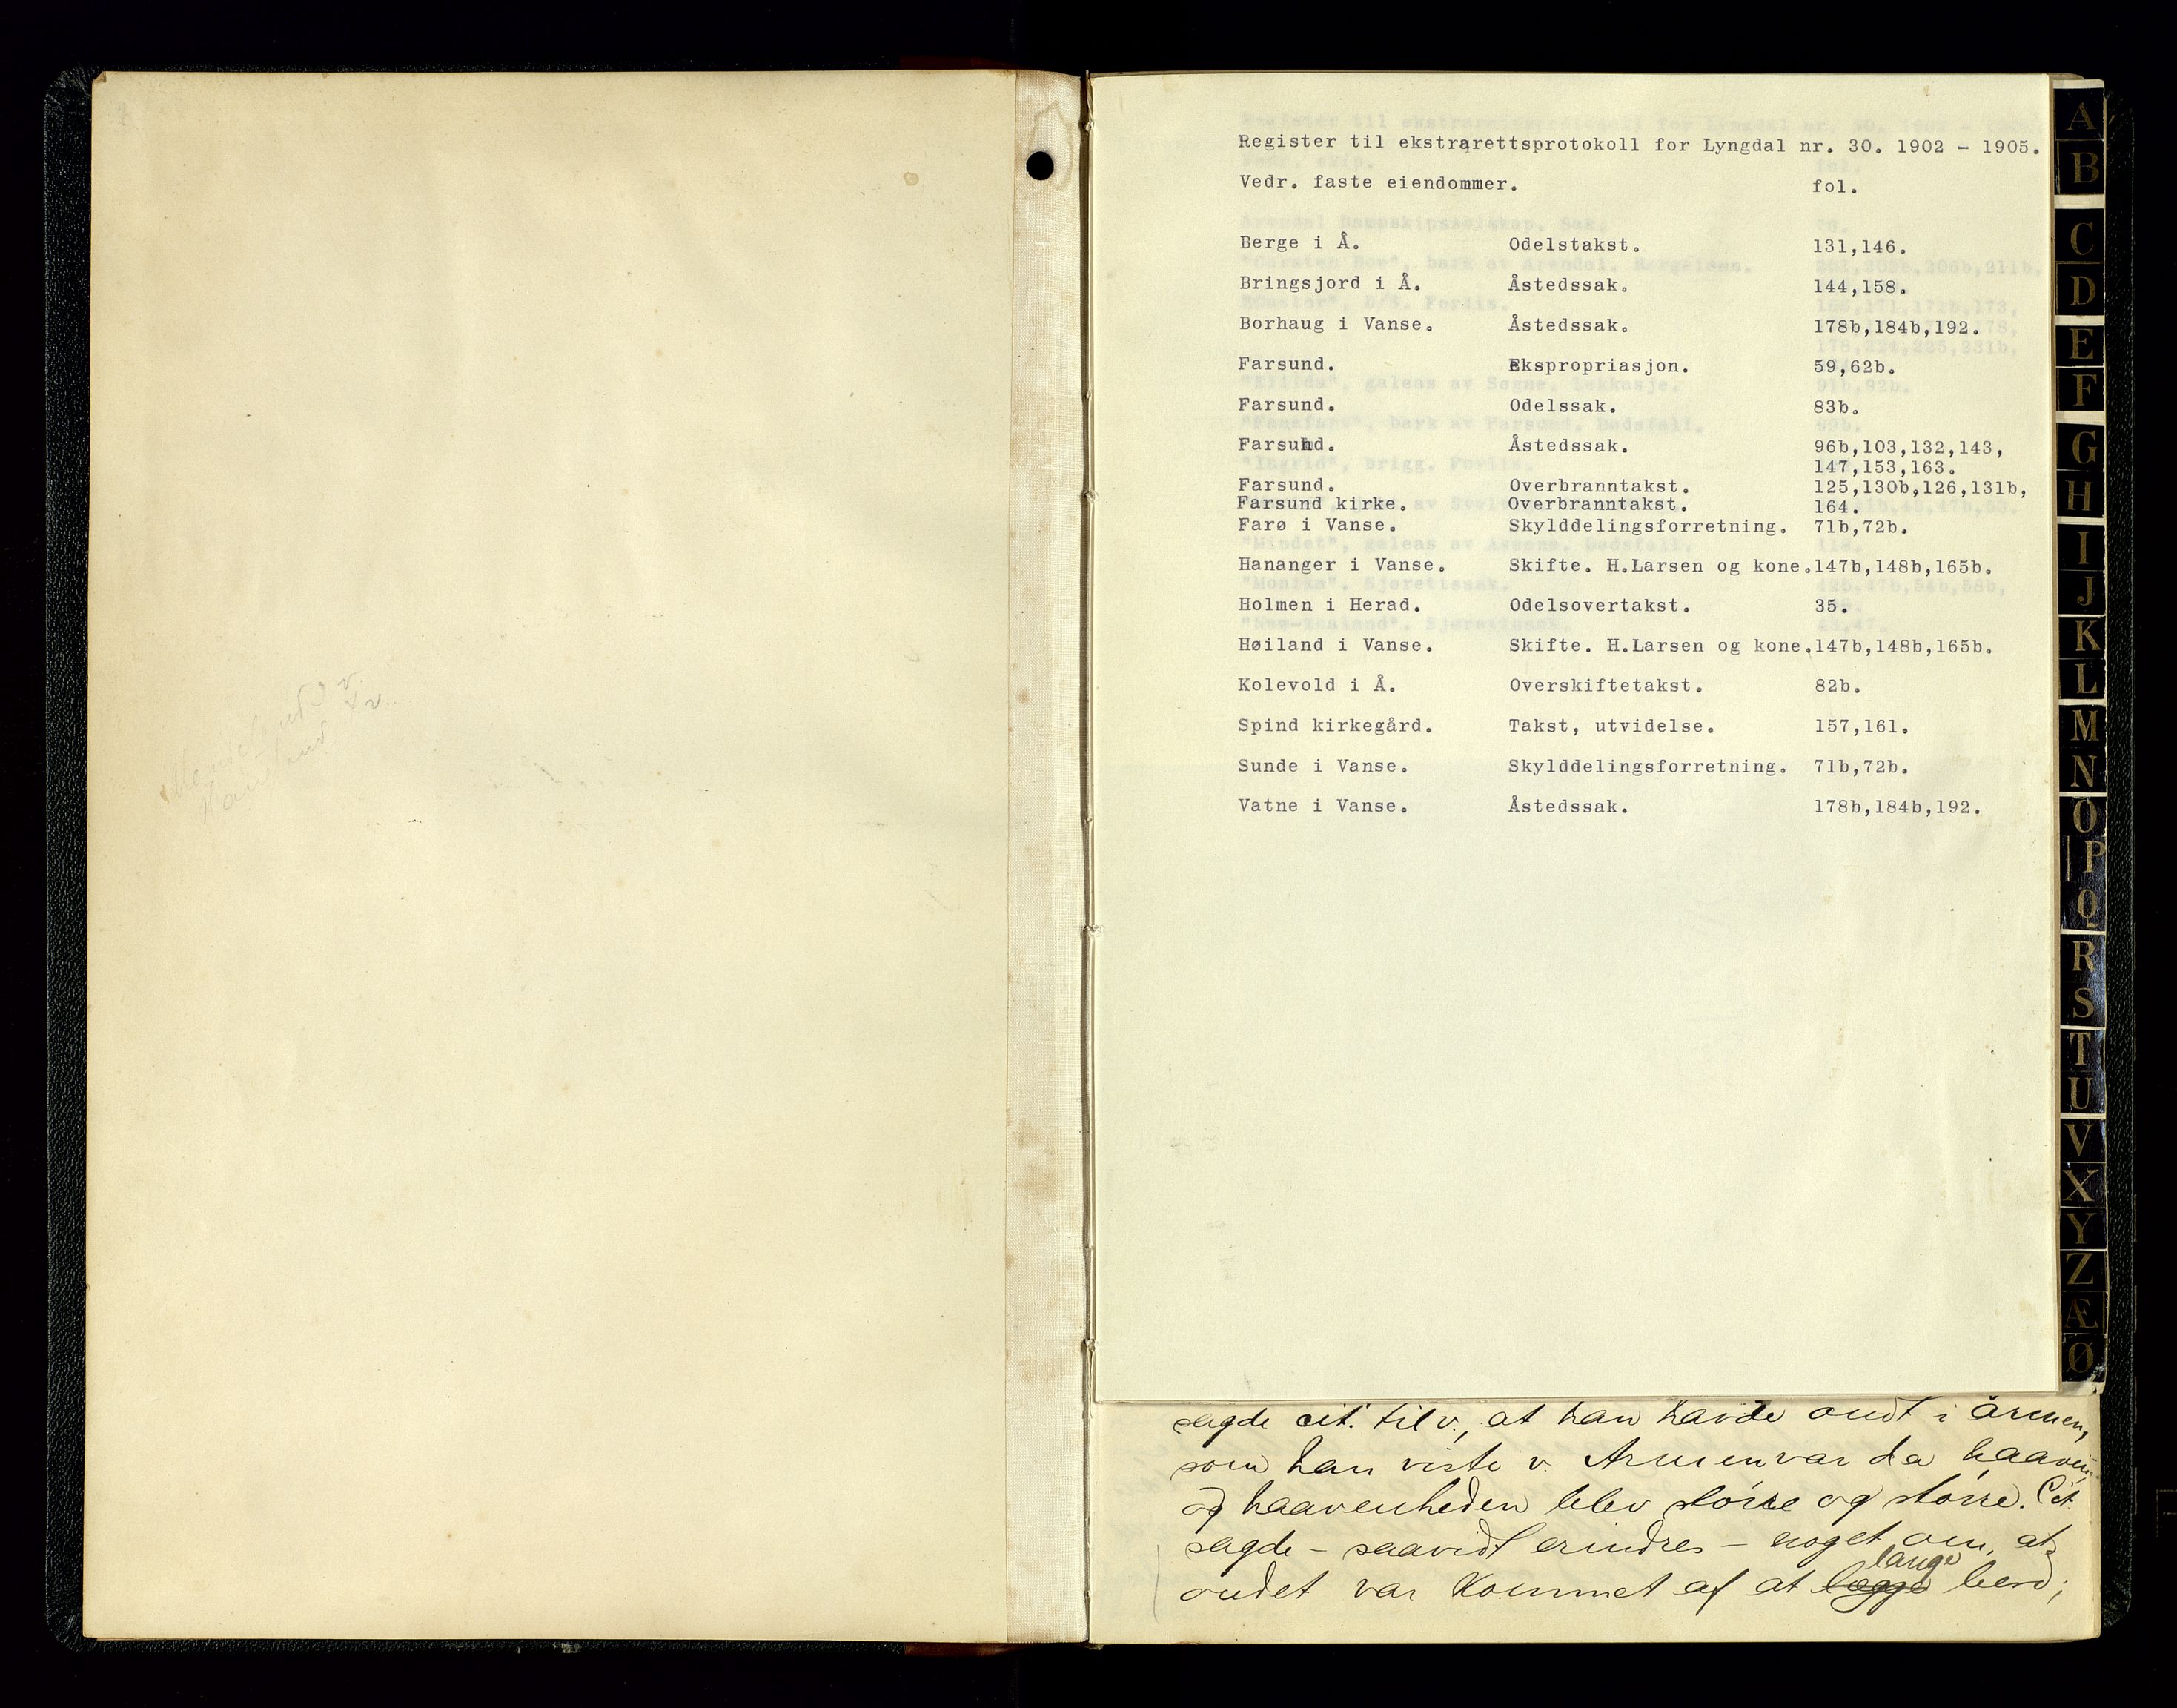 Register til ekstrarettsprotokoll for Lyngdal nr. 30. 1902 - 1905.
Vedr. faste eiendommer. fol.
Berge i Å. Odelstakst. 131,146.
Bringsjord i Å. Åstedssak. 144,158.
Borhaug i Vanse. Åstedssak. 178b,184b,192.
Farsund. Ekspropriasjon. 59,62b.
Farsund. Odelssak. 83b.
Farsund. Åstedssak. 96b,103,132,143,
147,153,163.
Farsund. Overbranntakst. 125,130b,126,131b,
Farsund kirke. Overbranntakst. 164.
Farø i Vanse. Skylddelingsforretning. 71b,72b.
Hananger i Vanse. Skifte. H.Larsen og kone. 147b,148b,165b.
Holmen i Herad. Odelsovertakst. 35.
Høiland i Vanse. Skifte. H.Larsen og kone. 147b,148b,165b.
Kolevold i Å. Overskiftetakst. 82b.
Spind kirkegård. Takst, utvidelse. 157,161.
Sunde i Vanse. Skylddelingsforretning. 71b,72b.
Vatne i Vanse. Åstedssak. 178b,184b,192.
sagde cit. til v., at han havde ondt i armen,
som han viste v. Armen var da haaven,
og haavenheden blev større og større. Cit.
sagde – saavidt erindres – noget om, at
ondet var kommet af at lange
A
B
C
D
E
F
G
H
I
J
K
L
M
N
O
P
Q
R
S
T
U
V
X
Y
Z
Æ
Ø